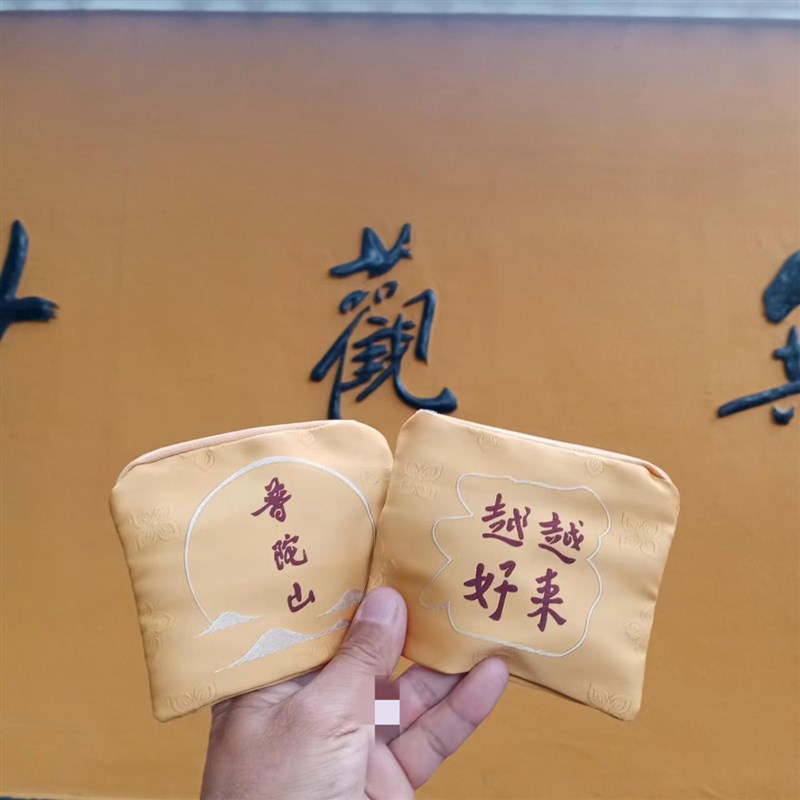 觀
普陀山
越来
越好